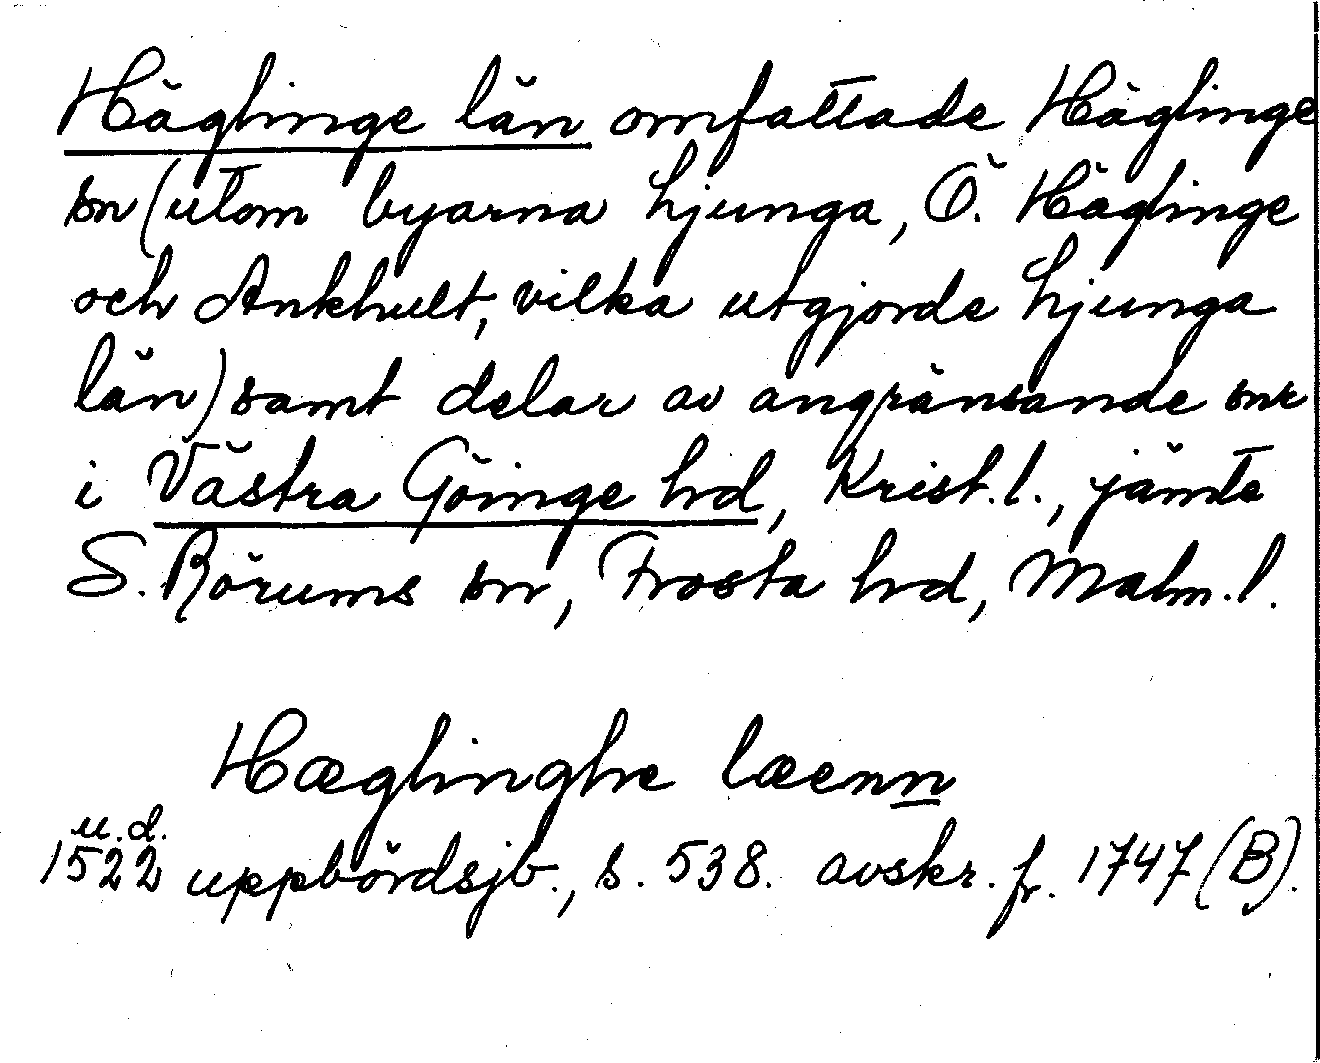 Häglinge län omfattade Häglinge
sn (utom byarna Ljunga, Ö. Häglinge
och Ankhult, vilka utgjorde Ljunga
län) samt delar av angränsande snr
i Västra Göinge hd, Krist. l., jämte
S. Rörums sn, Frosta hd, Malm. l.
Hæglinghe læenn
u.d.
1522 uppbördsjb., s. 538. avskr. fr. 1747 (B).